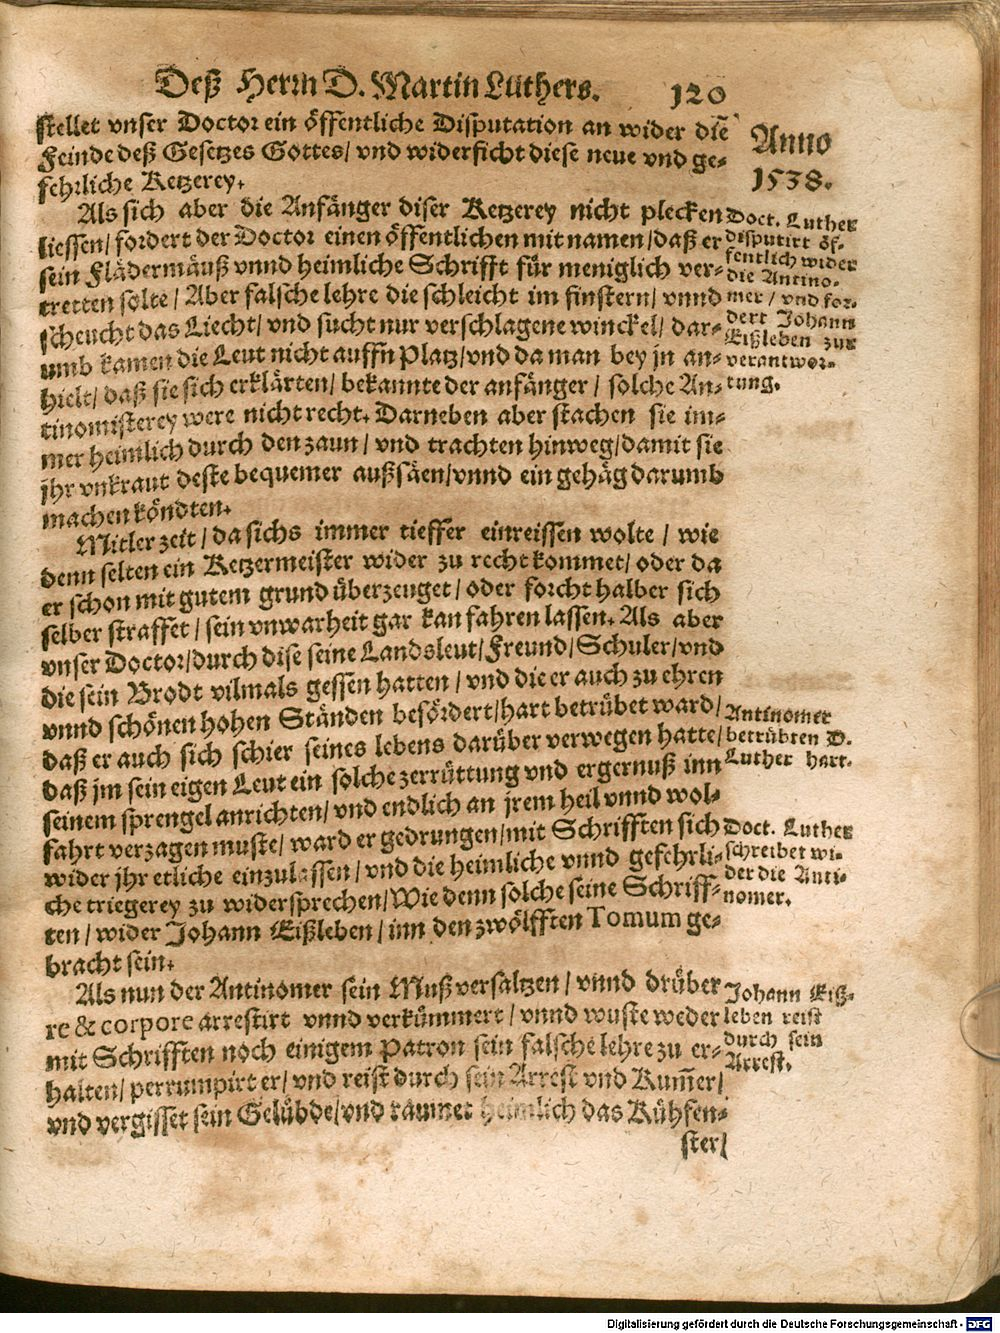 Deß Herrn D. Martin Luthers. 120
stellet vnser Doctor ein öffentliche Disputation an wider die
Feinde deß Gesetzes Gottes/ vnd widerficht diese neue vnd ge-
fehrliche Ketzerey.
Als sich aber die Anfänger diser Ketzerey nicht plecken
liessen/ fordert der Doctor einen öffentlichen mit namen/ daß er
sein Flädermäuß vnnd heimliche Schrifft für meniglich ver-
tretten solte/ Aber falsche lehre die schleicht im finstern/ vnnd
scheucht das Liecht/ vnd sucht nur verschlagene winckel/ dar-
umb kamen die Leut nicht auffn Platz/ vnd da man bey jn an-
hielt/ daß sie sich erklärten/ bekannte der anfänger/ solche An-
tinomisterey were nicht recht. Darneben aber stachen sie im-
mer heimlich durch den zaun/ vnd trachten hinweg/ damit sie
jhr vnkraut deste bequemer außsäen/ vnnd ein gehäg darumb
machen köndten.
Mitler zeit/ da sichs immer tieffer einreissen wolte/ wie
denn selten ein Ketzermeister wider zu recht kommet/ oder da
er schon mit gutem grund überzeuget/ oder forcht halber sich
selber straffet/ sein vnwarheit gar kan fahren lassen. Als aber
vnser Doctor/ durch dise seine Landsleut/ Freund/ Schuler/ vnd
die sein Brodt vilmals gessen hatten/ vnd die er auch zu ehren
vnnd schönen hohen Ständen befördert/ hart betrübet ward/
daß er auch sich schier seines lebens darüber verwegen hatte/
daß jm sein eigen Leut ein solche zerrüttung vnd ergernuß inn
seinem sprengel anrichten/ vnd endlich an jrem heil vnnd wol-
fahrt verzagen muste/ ward er gedrungen/ mit Schrifften sich
wider jhr etliche einzulassen/ vnd die heimliche vnnd gefehrli-
che triegerey zu widersprechen/ Wie denn solche seine Schriff-
ten/ wider Johann Eißleben/ inn den zwölfften Tomum ge-
bracht sein.
Als nun der Antinomer sein Muß versaltzen/ vnnd drüber
re & corpore arrestirt vnnd verkümmert/ vnnd wuste weder
mit Schrifften noch einigem Patron sein falsche lehre zu er-
halten/ perrumpirt er/ vnd reist durch sein Arrest vnd Kum̃er/
vnd vergisset sein Gelübde/ vnd raumet heimlich das Kühfen-
ster/
Anno
1538.
Doct. Luther
disputirt öf-
fentlich wider
die Antino-
mer/ vnd for-
dert Johann
Eißleben zur
verantwor-
tung.
Antinomer
betrübten D.
Luther hart.
Doct. Luther
schreibet wi-
der die Anti-
nomer.
Johann Eiß-
leben reist
durch sein
Arrest.
Digitalisierung gefördert durch die Deutsche Forschungsgemeinschaft - DFG